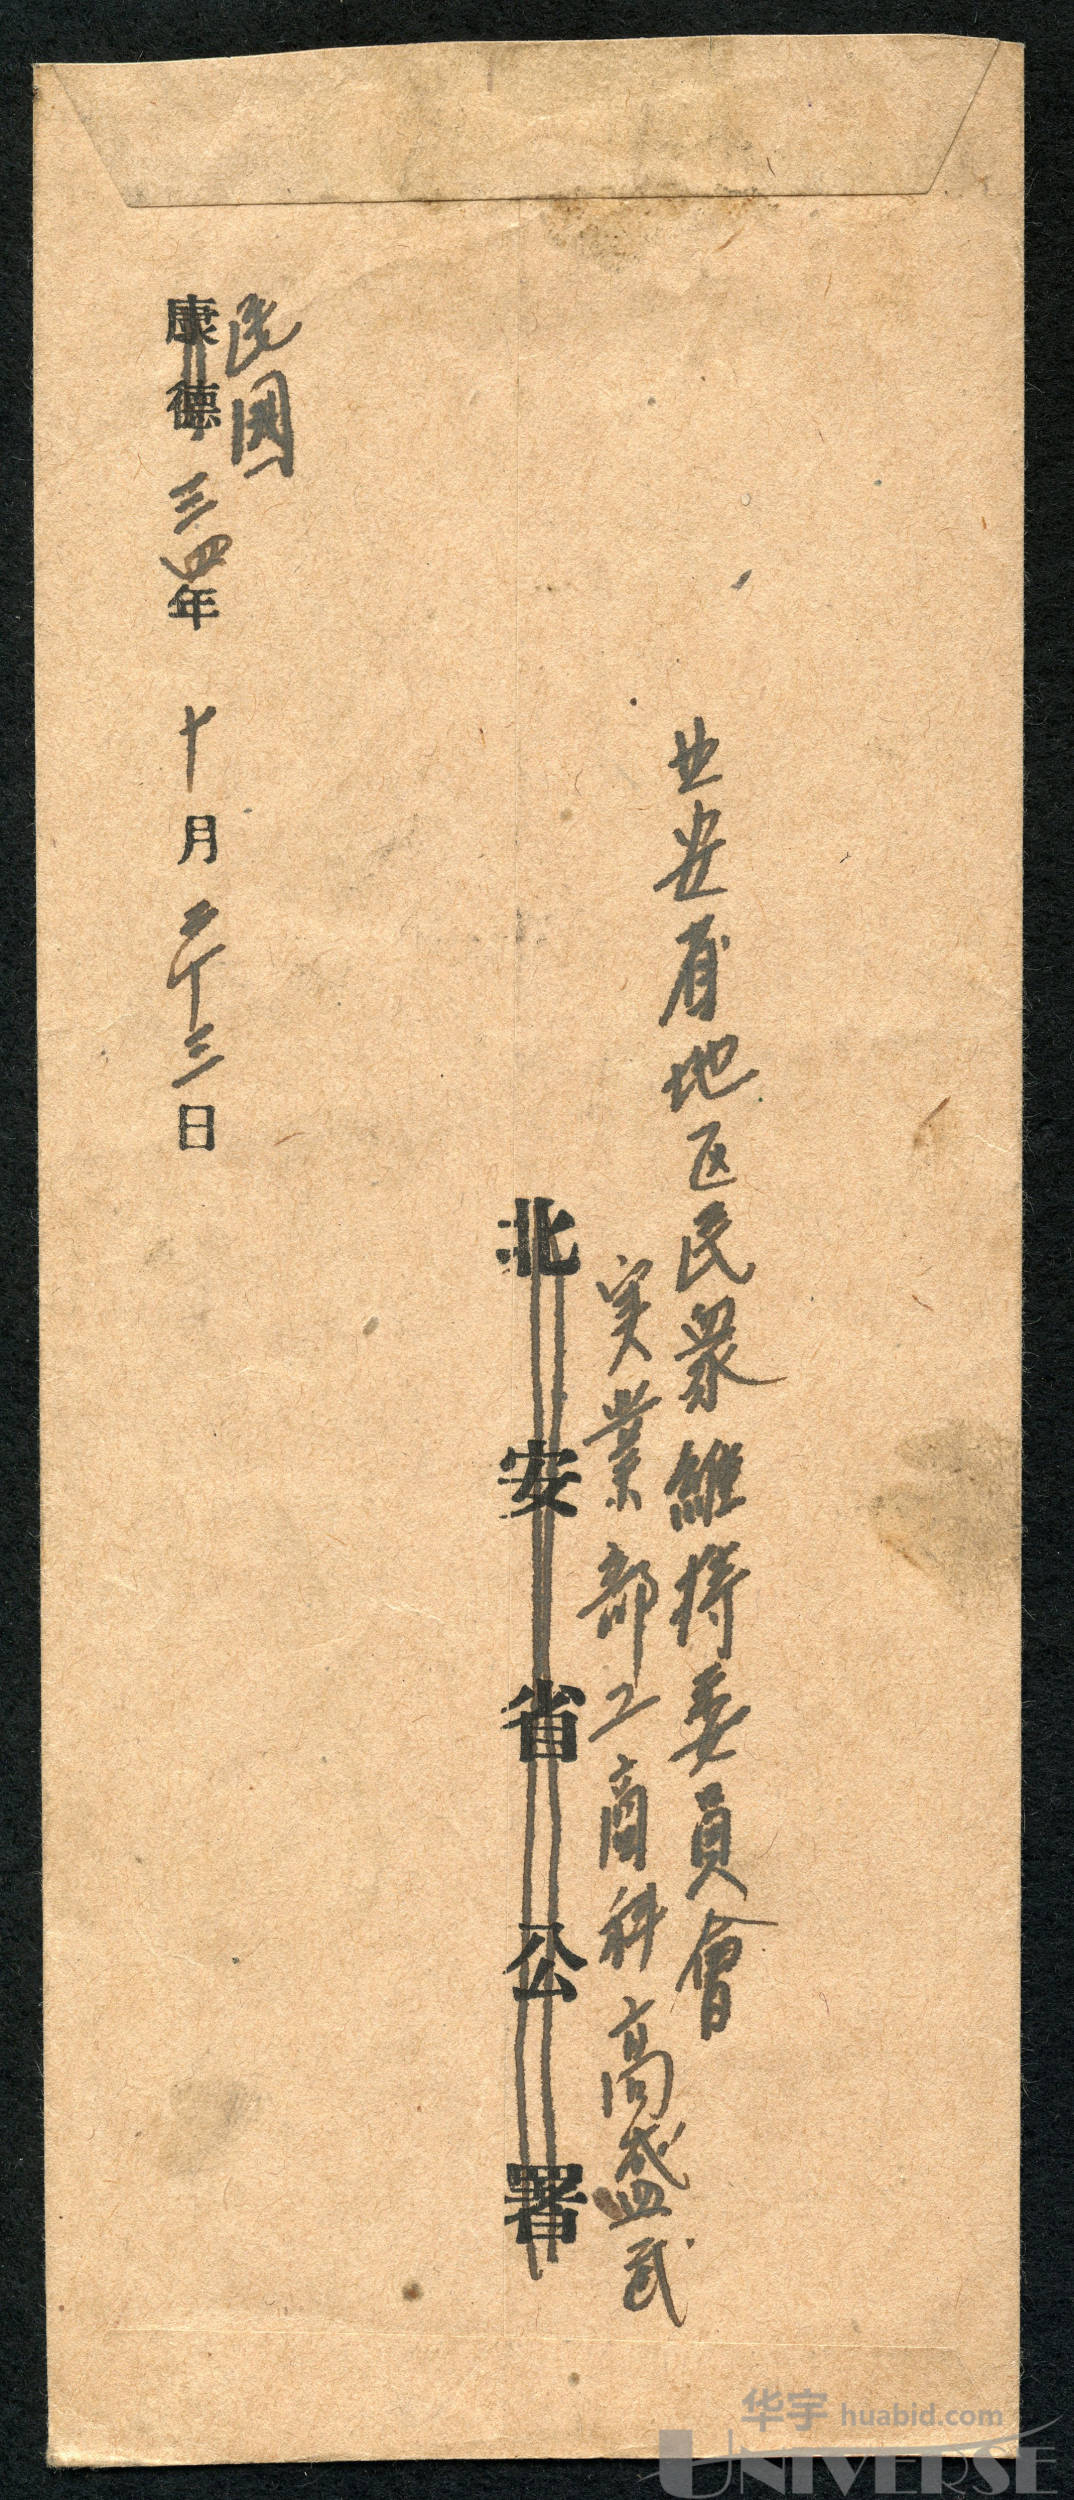 北安省地区民眾維持委員會
実業部工商科高盛武
北安省公署
民国
康德三四年十月二十三日
华宇 huabid.com
UNIVERSE